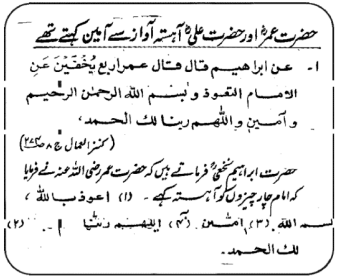 حضرت عمرؓ اور حضرت علیؓ آہستہ آواز سے آمین کہتے تھے
۱۔ عن ابراھیم قال قال عمر اربع یخفین عن
الامام التعوذ وبسم اللہ الرحمن الرحیم
وآمین واللھم ربنا لک الحمد،
(کنز العمال ج ۸ ص ۲۷۴)
حضرت ابراہیم نخعیؒ فرماتے ہیں کہ حضرت عمر رضی اللہ عنہ نے فرمایا
کہ امام چار چیزوں کو آہستہ کہے۔ (۱) اعوذ باللہ،
(۲) بسم اللہ (۳) آمین (۴) اللھم ربنا
لک الحمد۔